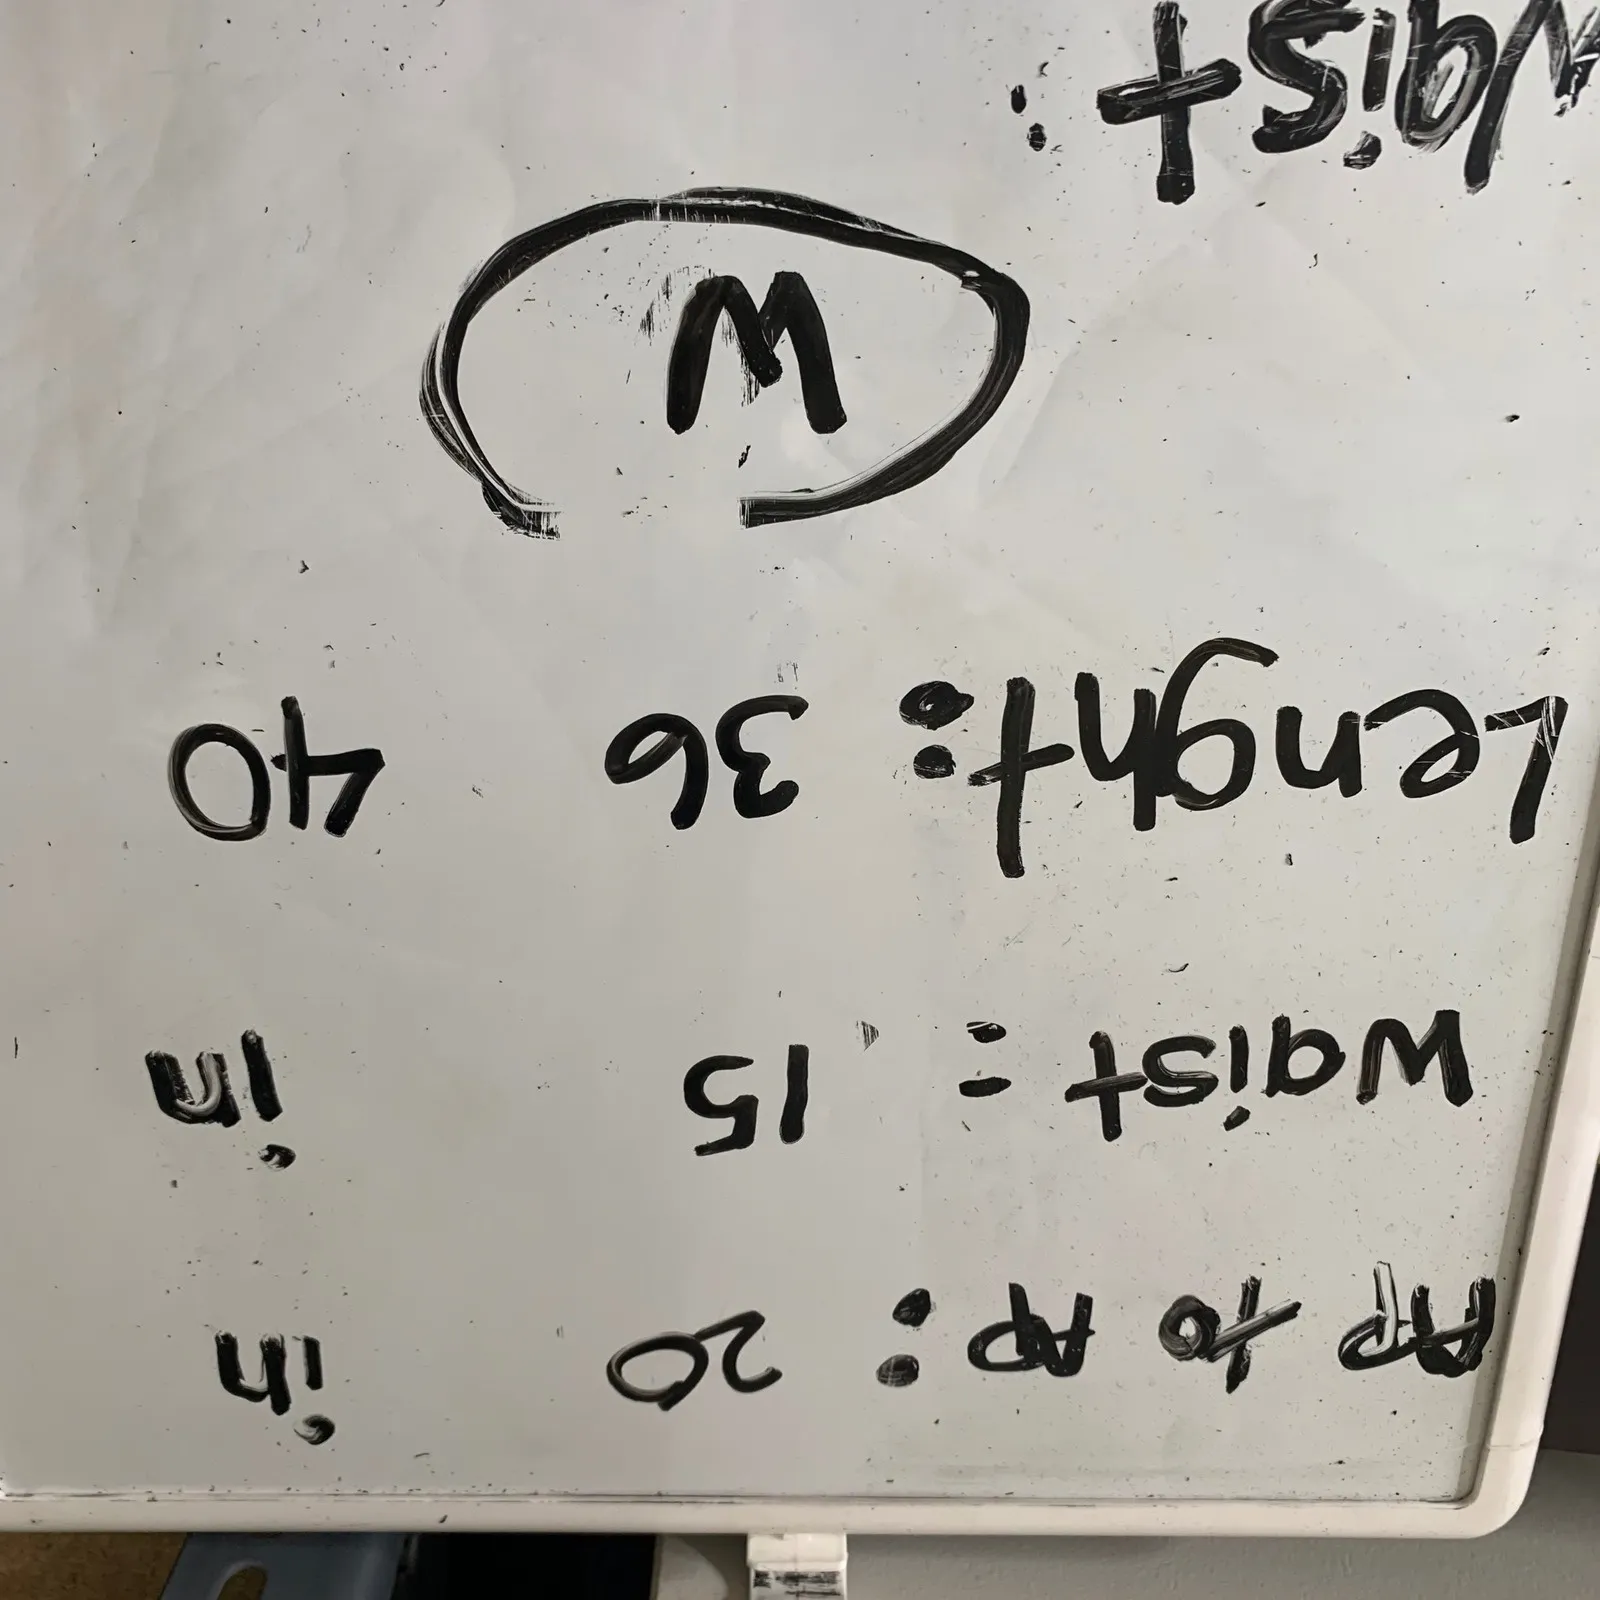 AP to AP : 20 in
Waist : 15 in
Lenght : 36 40
W
Waist :